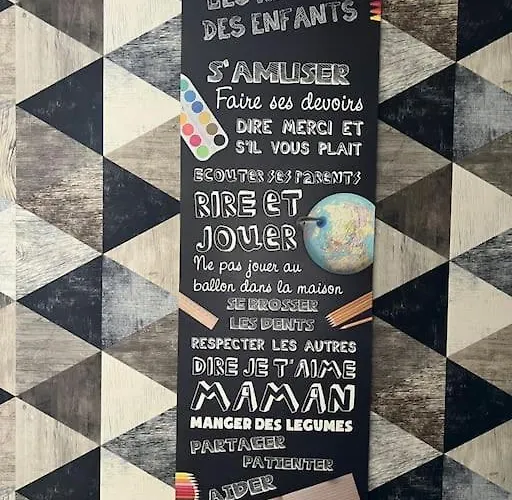 DES ENFANTS
S'AMUSER
Faire ses devoirs
DIRE MERCI ET
S'IL VOUS PLAIT
ECOUTER SES PARENTS
RIRE ET
JOUER
Ne pas jouer au
ballon dans la maison
SE BROSSER
LES DENTS
RESPECTER LES AUTRES
DIRE JE T'AIME
MAMAN
MANGER DES LEGUMES
PARTAGER
PATIENTER
AIDER